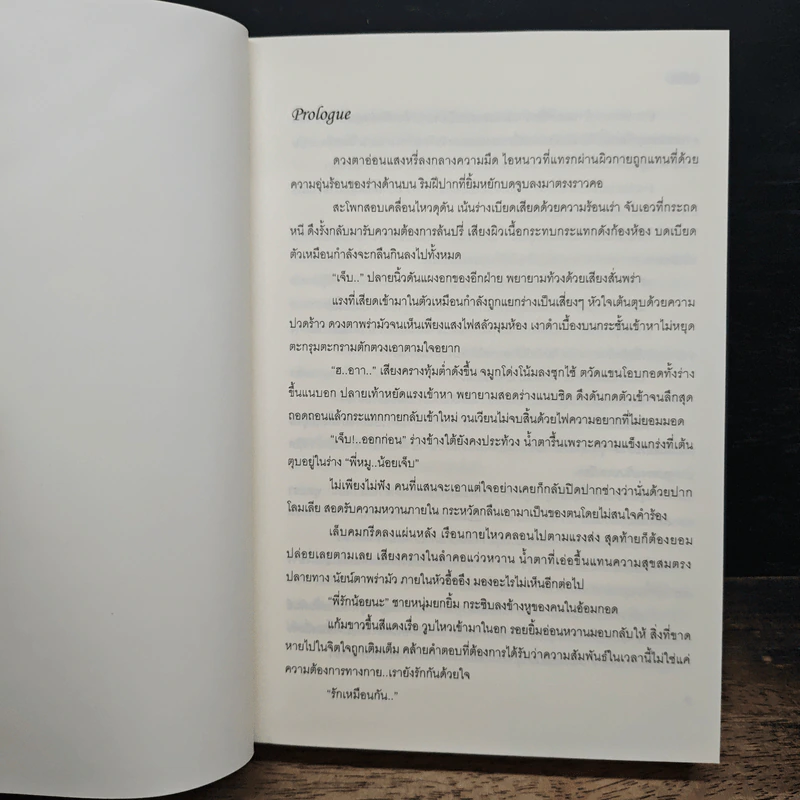 Prologue
ดวงตาอ่อนแสงหรี่ลงกลางความมืด ไอหนาวที่แทรกผ่านผิวกายถูกแทนที่ด้วย
ความอุ่นร้อนของร่างด้านบน ริมฝีปากที่ยิ้มหยักบดจูบลงมาตรงราวคอ
สะโพกสอบเคลื่อนไหวดุดัน เน้นร่างเบียดเสียดด้วยความร้อนเร่า จับเอวที่กระถด
หนี ดึงรั้งกลับมารับความต้องการล้นปรี่ เสียงผิวเนื้อกระทบกระแทกดังก้องห้อง บดเบียด
ตัวเหมือนกำลังจะกลืนกินลงไปทั้งหมด
“เจ็บ..” ปลายนิ้วดันแผงอกของอีกฝ่าย พยายามท้วงด้วยเสียงสั่นพร่า
แรงที่เสียดเข้ามาในตัวเหมือนกำลังถูกแยกร่างเป็นเสี่ยงๆ หัวใจเต้นตุบด้วยความ
ปวดร้าว ดวงตาพร่ามัวจนเห็นเพียงแสงไฟสลัวมุมห้อง เงาดำเบื้องบนกระชั้นเข้าหาไม่หยุด
ตะกรุมตะกรามตักตวงเอาตามใจอยาก
“ฮ..อาา..” เสียงครางทุ้มต่ำดังขึ้น จมูกโด่งโน้มลงซุกไซ้ ตวัดแขนโอบกอดทั้งร่าง
ขึ้นแนบอก ปลายเท้าหยัดแรงเข้าหา พยายามสอดร่างแนบชิด ดึงดันกดตัวเข้าจนลึกสุด
ถอดถอนแล้วกระแทกกายกลับเข้าใหม่ วนเวียนไม่จบสิ้นด้วยไฟความอยากที่ไม่ยอมมอด
“เจ็บ!..ออกก่อน” ร่างข้างใต้ยังคงประท้วง น้ำตารื้นเพราะความแข็งแกร่งที่เต้น
ตุบอยู่ในร่าง “พี่หมู..น้อยเจ็บ”
ไม่เพียงไม่ฟัง คนที่แสนจะเอาแต่ใจอย่างเคยก็กลับปิดปากช่างว่านั่นด้วยปาก
โลมเลีย สอดรับความหวานภายใน กระหวัดกลืนเอามาเป็นของตนโดยไม่สนใจคำร้อง
เล็บคมกรีดลงแผ่นหลัง เรือนกายไหวคลอนไปตามแรงส่ง สุดท้ายก็ต้องยอม
ปล่อยเลยตามเลย เสียงครางในลำคอแว่วหวาน น้ำตาที่เอ่อขึ้นแทนความสุขสมตรง
ปลายทาง นัยน์ตาพร่ามัว ภายในหัวอื้ออึง มองอะไรไม่เห็นอีกต่อไป
“พี่รักน้อยนะ” ชายหนุ่มยกยิ้ม กระซิบลงข้างหูของคนในอ้อมกอด
แก้มขาวขึ้นสีแดงเรื่อ วูบไหวเข้ามาในอก รอยยิ้มอ่อนหวานมอบกลับให้ สิ่งที่ขาด
หายไปในจิตใจถูกเติมเต็ม คล้ายคำตอบที่ต้องการได้รับว่าความสัมพันธ์ในเวลานี้ไม่ใช่แค่
ความต้องการทางกาย..เรายังรักกันด้วยใจ
“รักเหมือนกัน..”